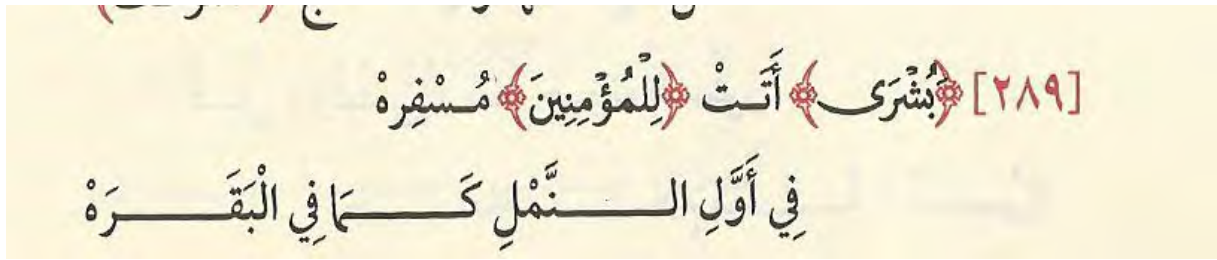 [٢٨٩] ﴿بُشْرَى﴾ أَتَتْ ﴿لِلْمُؤْمِنِينَ﴾ مُسْفِرهْ
فِي أَوَّلِ النَّمْلِ كَمَا فِي الْبَقَرَهْ